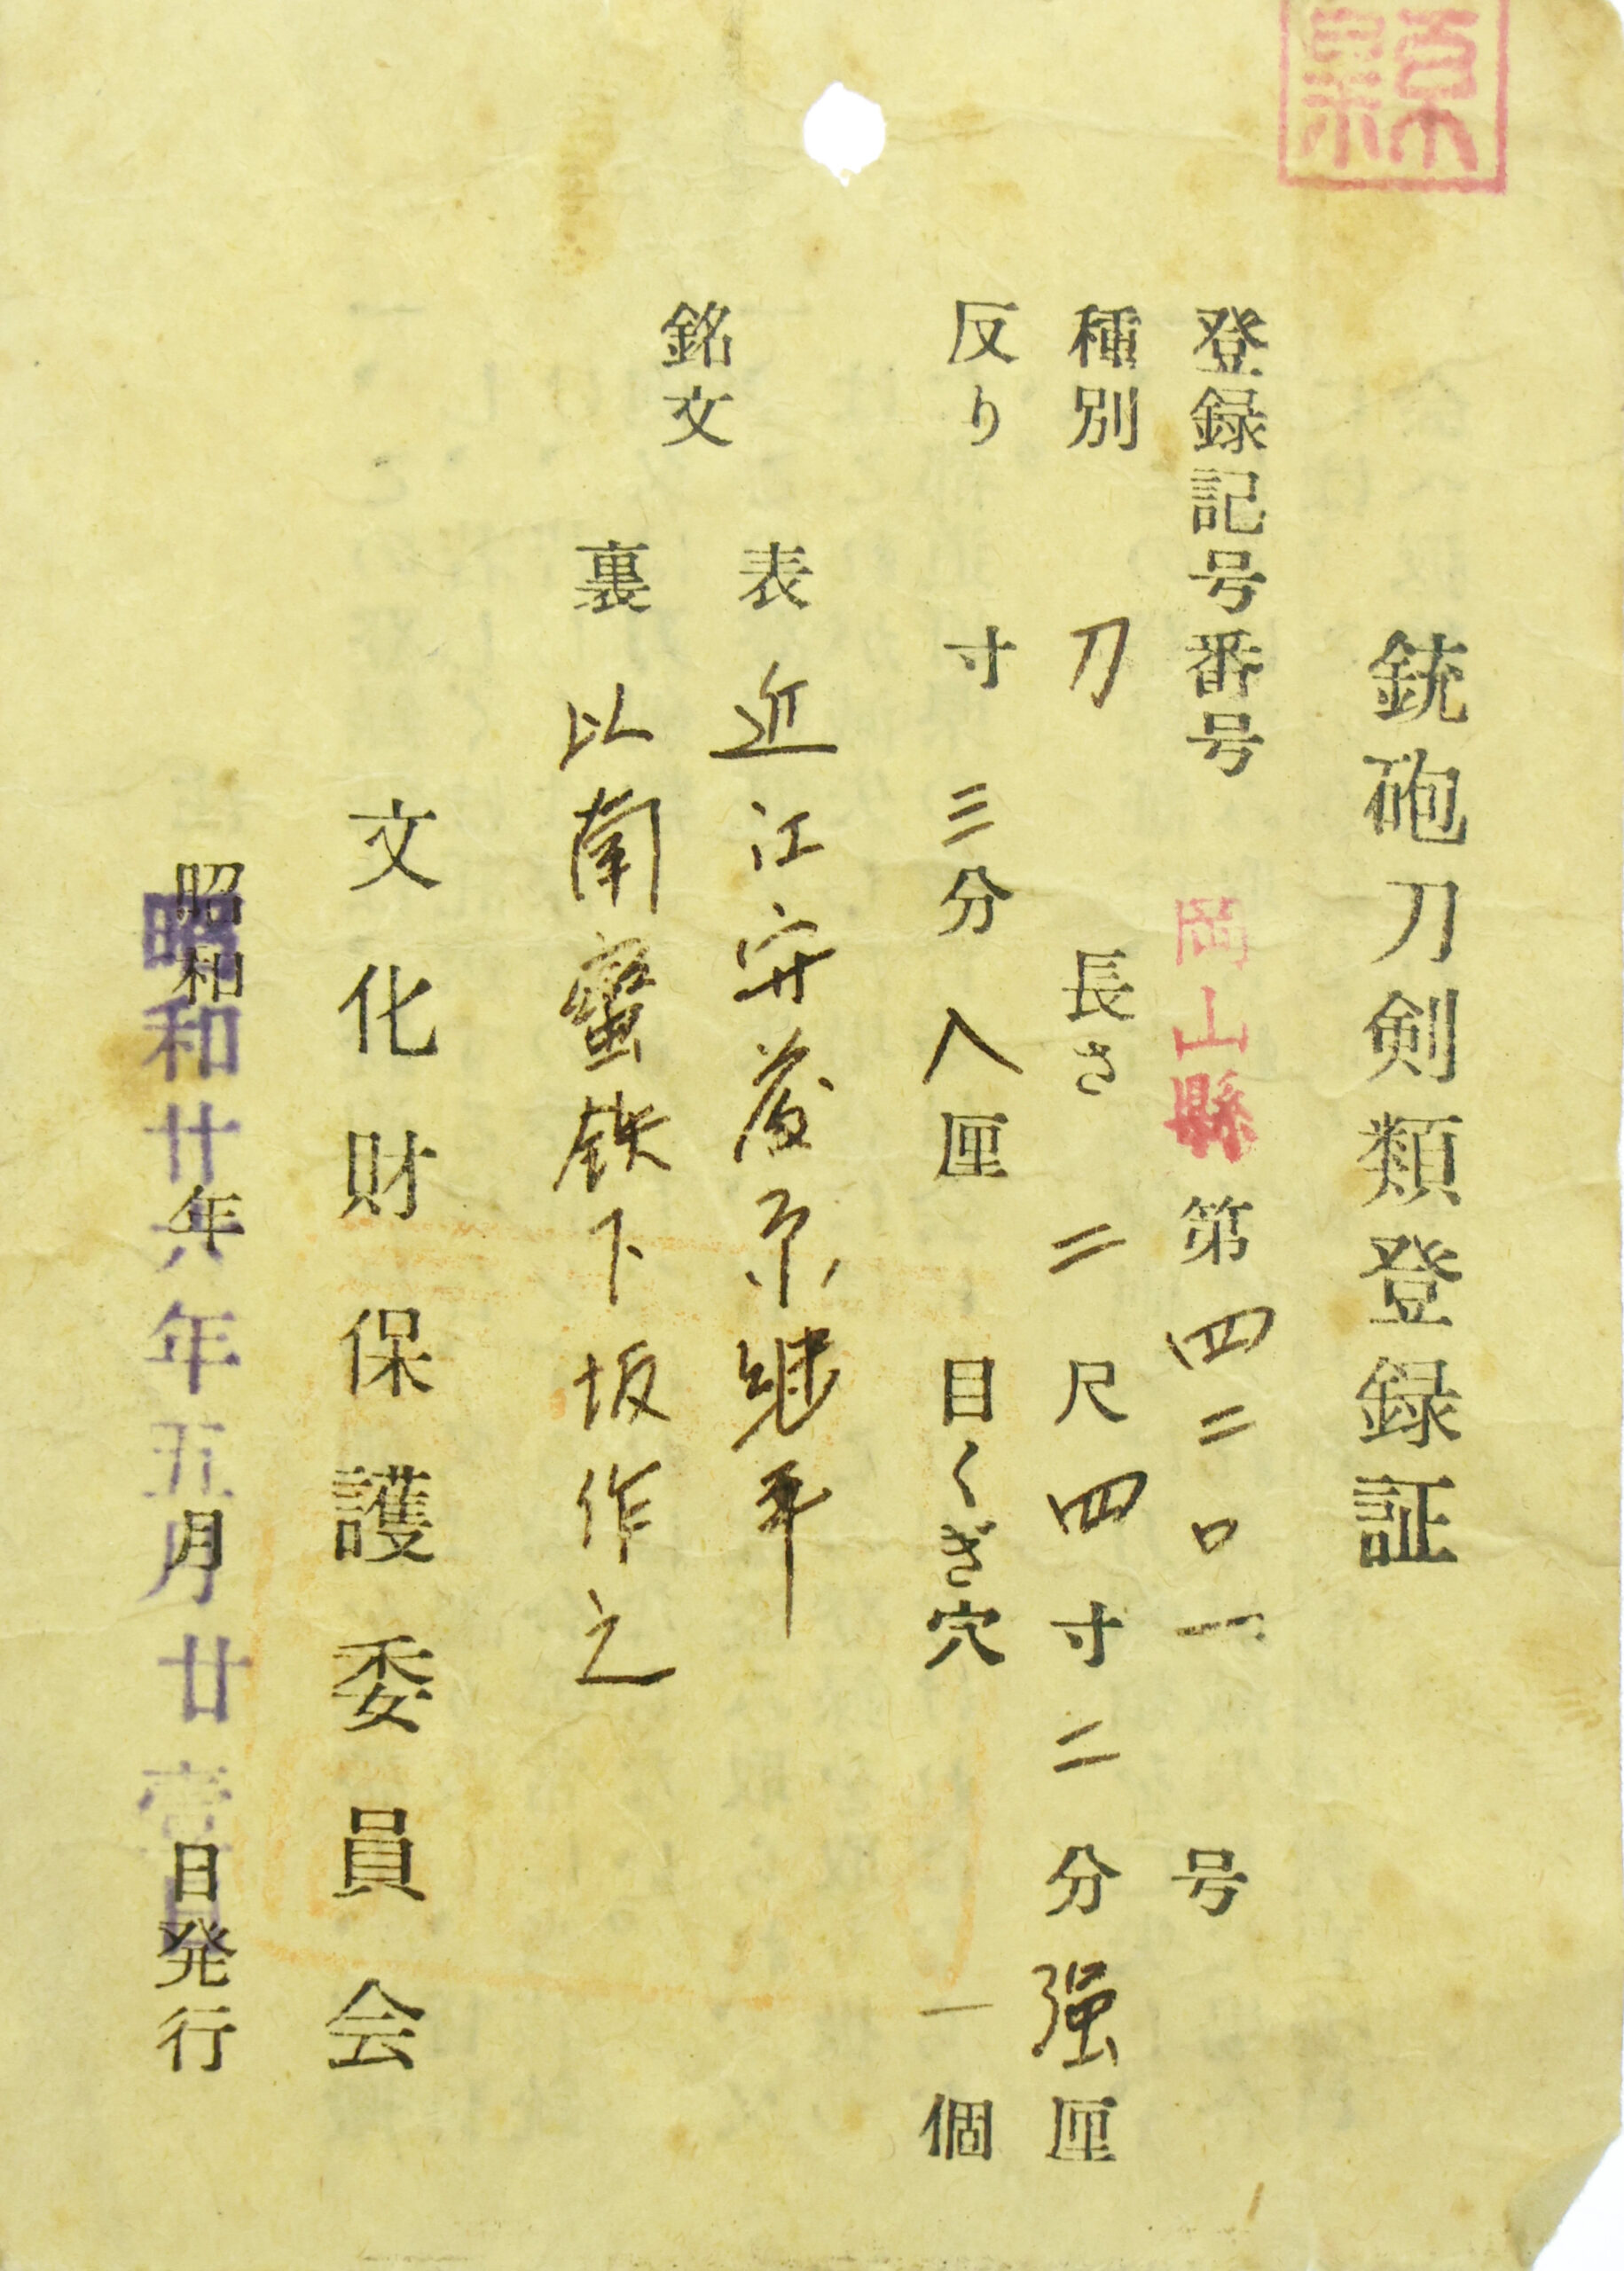 銃砲刀剣類登録証
登録記号番号 岡山縣 第 四二〇一 号
種別 刀 長さ 二尺四寸二分强厘
反り 寸三分八厘 目くぎ穴 一個
銘文
表 近江守藤原継平
裏 以南蛮鉄下坂作之
文化財保護委員会
昭和 年 月 日発行
昭和廿六年五月廿壹日